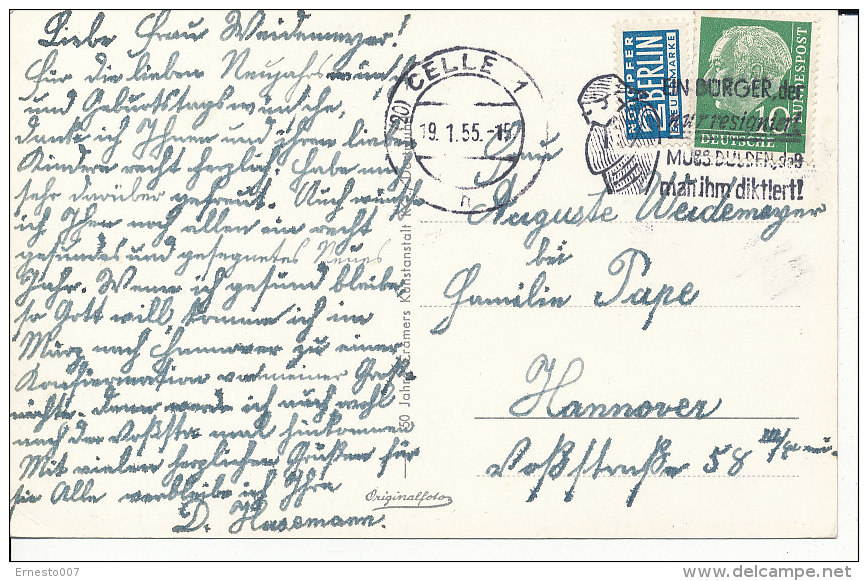 Liebe Frau Weidemeyer!
Für die lieben Neujahrswünsche
und Geburtstagswünsche,
danke ich Ihnen und ihren lieben
Kindern recht herzlich, habe mich
sehr darüber gefreut. Auch wünsche
ich Ihnen noch allen ein recht
gesundes und gesegnetes Neues
Jahr. Wenn ich gesund bleibe
so Gott will, komme ich im
März nach Hannover zu einer
Konfirmation von meiner Groß-
nichte. Dann werde ich auch wohl
nach der Voßstr. mal hinkommen
Mit vielen herzlichen Grüßen für
sie Alle verbleibe ich Ihre
D. Hasemann.
50 Jahre Cramers Kunstanstalt KG. Dortmund
Originalfoto
(20) CELLE 1
19.1.55.-15
n
NOTOPFER
2 BERLIN
STEUERMARKE
DEUTSCHE
BUNDESPOST
10
EIN BÜRGER, der
nur resigniert
MUSS DULDEN, daß
man ihm diktiert!
Frau
Auguste Weidemeyer
bei
Familie Pape
Hannover
Voßstraße 58
Ernesto007
delcampe.net